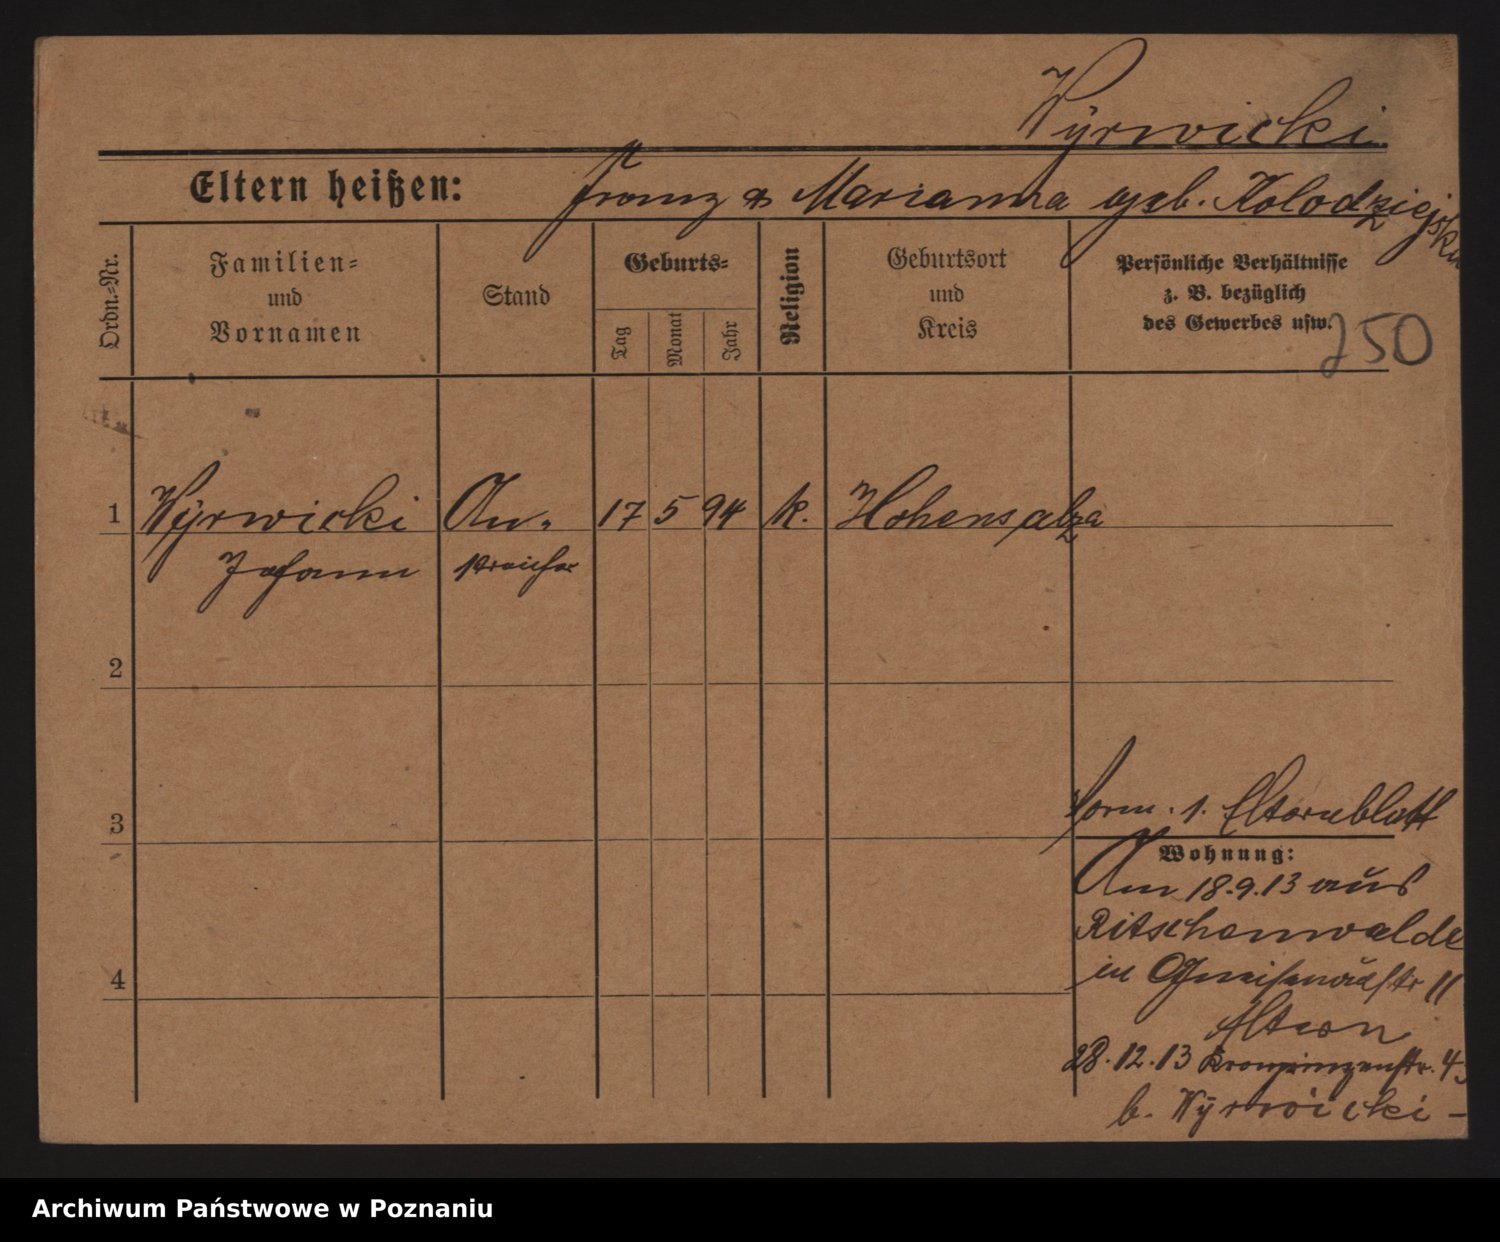 Wÿrwicki
Eltern heißen: Franz & Marianna geb. Kolodziejska
Ordn.-Nr.
Familien-
und
Vornamen
Stand
Geburts-
Tag
Monat
Jahr
Religion
Geburtsort
und
Kreis
Persönliche Verhältnisse
z. B. bezüglich
des Gewerbes usw.
250
1 Wÿrwicki An- 17 5 94 k. Hohensalza
Johann streicher
2
3
4
vorm. 1. Elternblatt
Wohnung:
Am 18.9.13 aus
Ritschenwalde
in Gneisenaustr 11
Eltern
28.12.13 Kronprinzenstr.
b. Wÿrwicki -
Archiwum Państwowe w Poznaniu